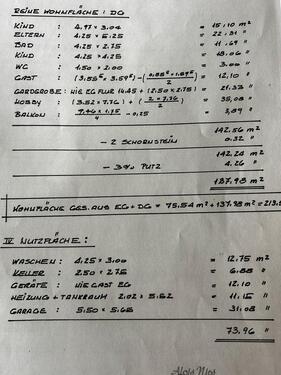 REINE WOHNFLÄCHE: DG
KIND : 4.97 x 3.04 = 15,10 m²
ELTERN : 4.25 x 5.25 = 22,31 "
BAD : 4.25 x 2.75 = 11,69 "
KIND : 4.25 x 4.25 = 18,06 "
WC : 1.50 x 2.00 = 3.00 "
GAST : = 12,10 "
GARDEROBE: WIE EG FLUR 14.45 + (2.50 x 2.75) = 21.33 "
HOBBY : (3.52 x 7.76) + = 35,08 "
BALKON : - 0,25 = 3,89 "
142.56 m²
- 2 SCHORNSTEIN 0.32 "
142.24 m²
- 3% PUTZ 4.26 "
137.98 m²
WOHNFLÄCHE GES. AUS EG + DG = 75.54 m² + 137.98 m² = 213.5
IV NUTZFLÄCHE:
WASCHEN : 4.25 x 3.00 = 12.75 m²
KELLER : 2.50 x 2.75 = 6.88 "
GERÄTE : WIE GAST EG = 12.10 "
HEIZUNG + TANKRAUM 2.02 x 5.52 = 11.15 "
GARAGE : 5.50 x 5.65 = 31.08 "
73.96 "